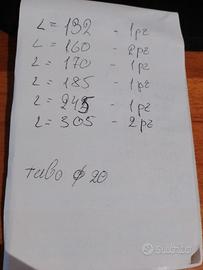 L = 132 - 1pz
L = 160 - 2pz
L = 170 - 1pz
L = 185 - 1pz
L = 245 - 1pz
L = 305 - 2pz
tubo ϕ 20
subito